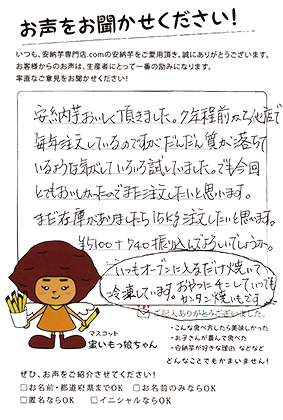 お声をお聞かせください!
いつも、安納芋専門店.comの安納芋をご愛用頂き、誠にありがとうございます。
お客様からのお声は、生産者にとって一番の励みになります。
率直なご意見をお聞かせください!
安納芋おいしく頂きました。7年程前から他店で
毎年注文しているのですがだんだん質が落ちて
いるような気がしていろいろ試していました。でも今回
とてもおいしかったのでまた注文したいと思います。
まだ在庫がありましたら15kg注文したいと思います。
¥5100+740振り込んでよろしいでしょうか。
いつもオーブンに入るだけ焼いて
冷凍しています。おやつにチンしていつでも
カンタン焼いもです
ご記入ありがとうございました。
・こんな食べ方したら美味しかった
・お子さんが喜んで食べた
・安納芋が好きな理由 などなど
どんなことでもかまいません!
マスコット
蜜いもっ娘ちゃん
ぜひ、お声をご紹介させてください!
□お名前・都道府県までOK □お名前のみならOK
□匿名ならOK □イニシャルならOK